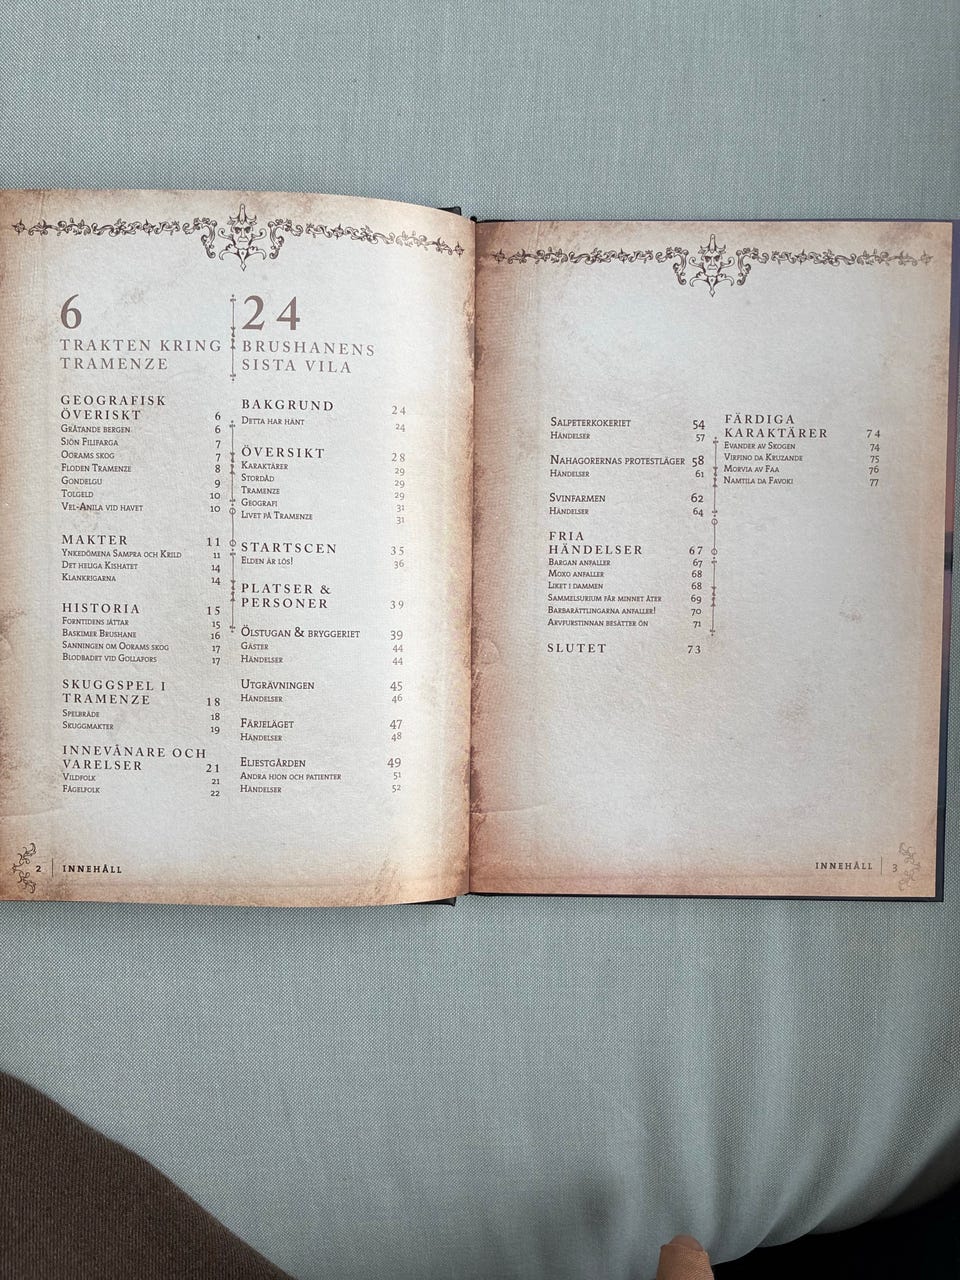 6
TRAKTEN KRING
TRAMENZE
GEOGRAFISK
ÖVERISKT 6
Gråtande bergen 6
Sjön Filifarga 7
Oorams skog 7
Floden Tramenze 8
Gondelgu 9
Tolgeld 10
Vel-Anila vid havet 10
MAKTER 11
Ynkedömena Sampra och Krild 11
Det heliga Kishatet 14
Klankrigarna 14
HISTORIA 15
Forntidens jättar 15
Baskimer Brushane 16
Sanningen om Oorams skog 17
Blodbadet vid Gollafors 17
SKUGGSPEL I
TRAMENZE 18
Spelbräde 18
Skuggmakter 19
INNEVÅNARE OCH
VARELSER 21
Vildfolk 21
Fågelfolk 22
24
BRUSHANENS
SISTA VILA
BAKGRUND 24
Detta har hänt 24
ÖVERSIKT 28
Karaktärer 29
Stordåd 29
Tramenze 29
Geografi 31
Livet på Tramenze 31
STARTSCEN 35
Elden är lös! 36
PLATSER &
PERSONER 39
Ölstugan & bryggeriet 39
Gäster 44
Händelser 44
Utgrävningen 45
Händelser 46
Färjeläget 47
Händelser 48
Eljestgården 49
Andra hjon och patienter 51
Händelser 52
2 | INNEHÅLL
Salpeterkokeriet 54
Händelser 57
Nahagorernas protestläger 58
Händelser 61
Svinfarmen 62
Händelser 64
FRIA
HÄNDELSER 67
Bargan anfaller 67
Moxo anfaller 68
Liket i dammen 68
Sammelsurium får minnet åter 69
Barbarättlingarna anfaller! 70
Arvfurstinnan besätter ön 71
SLUTET 73
FÄRDIGA
KARAKTÄRER 74
Evander av Skogen 74
Virfino da Kruzande 75
Morvia av Faa 76
Namtila da Favoki 77
INNEHÅLL | 3